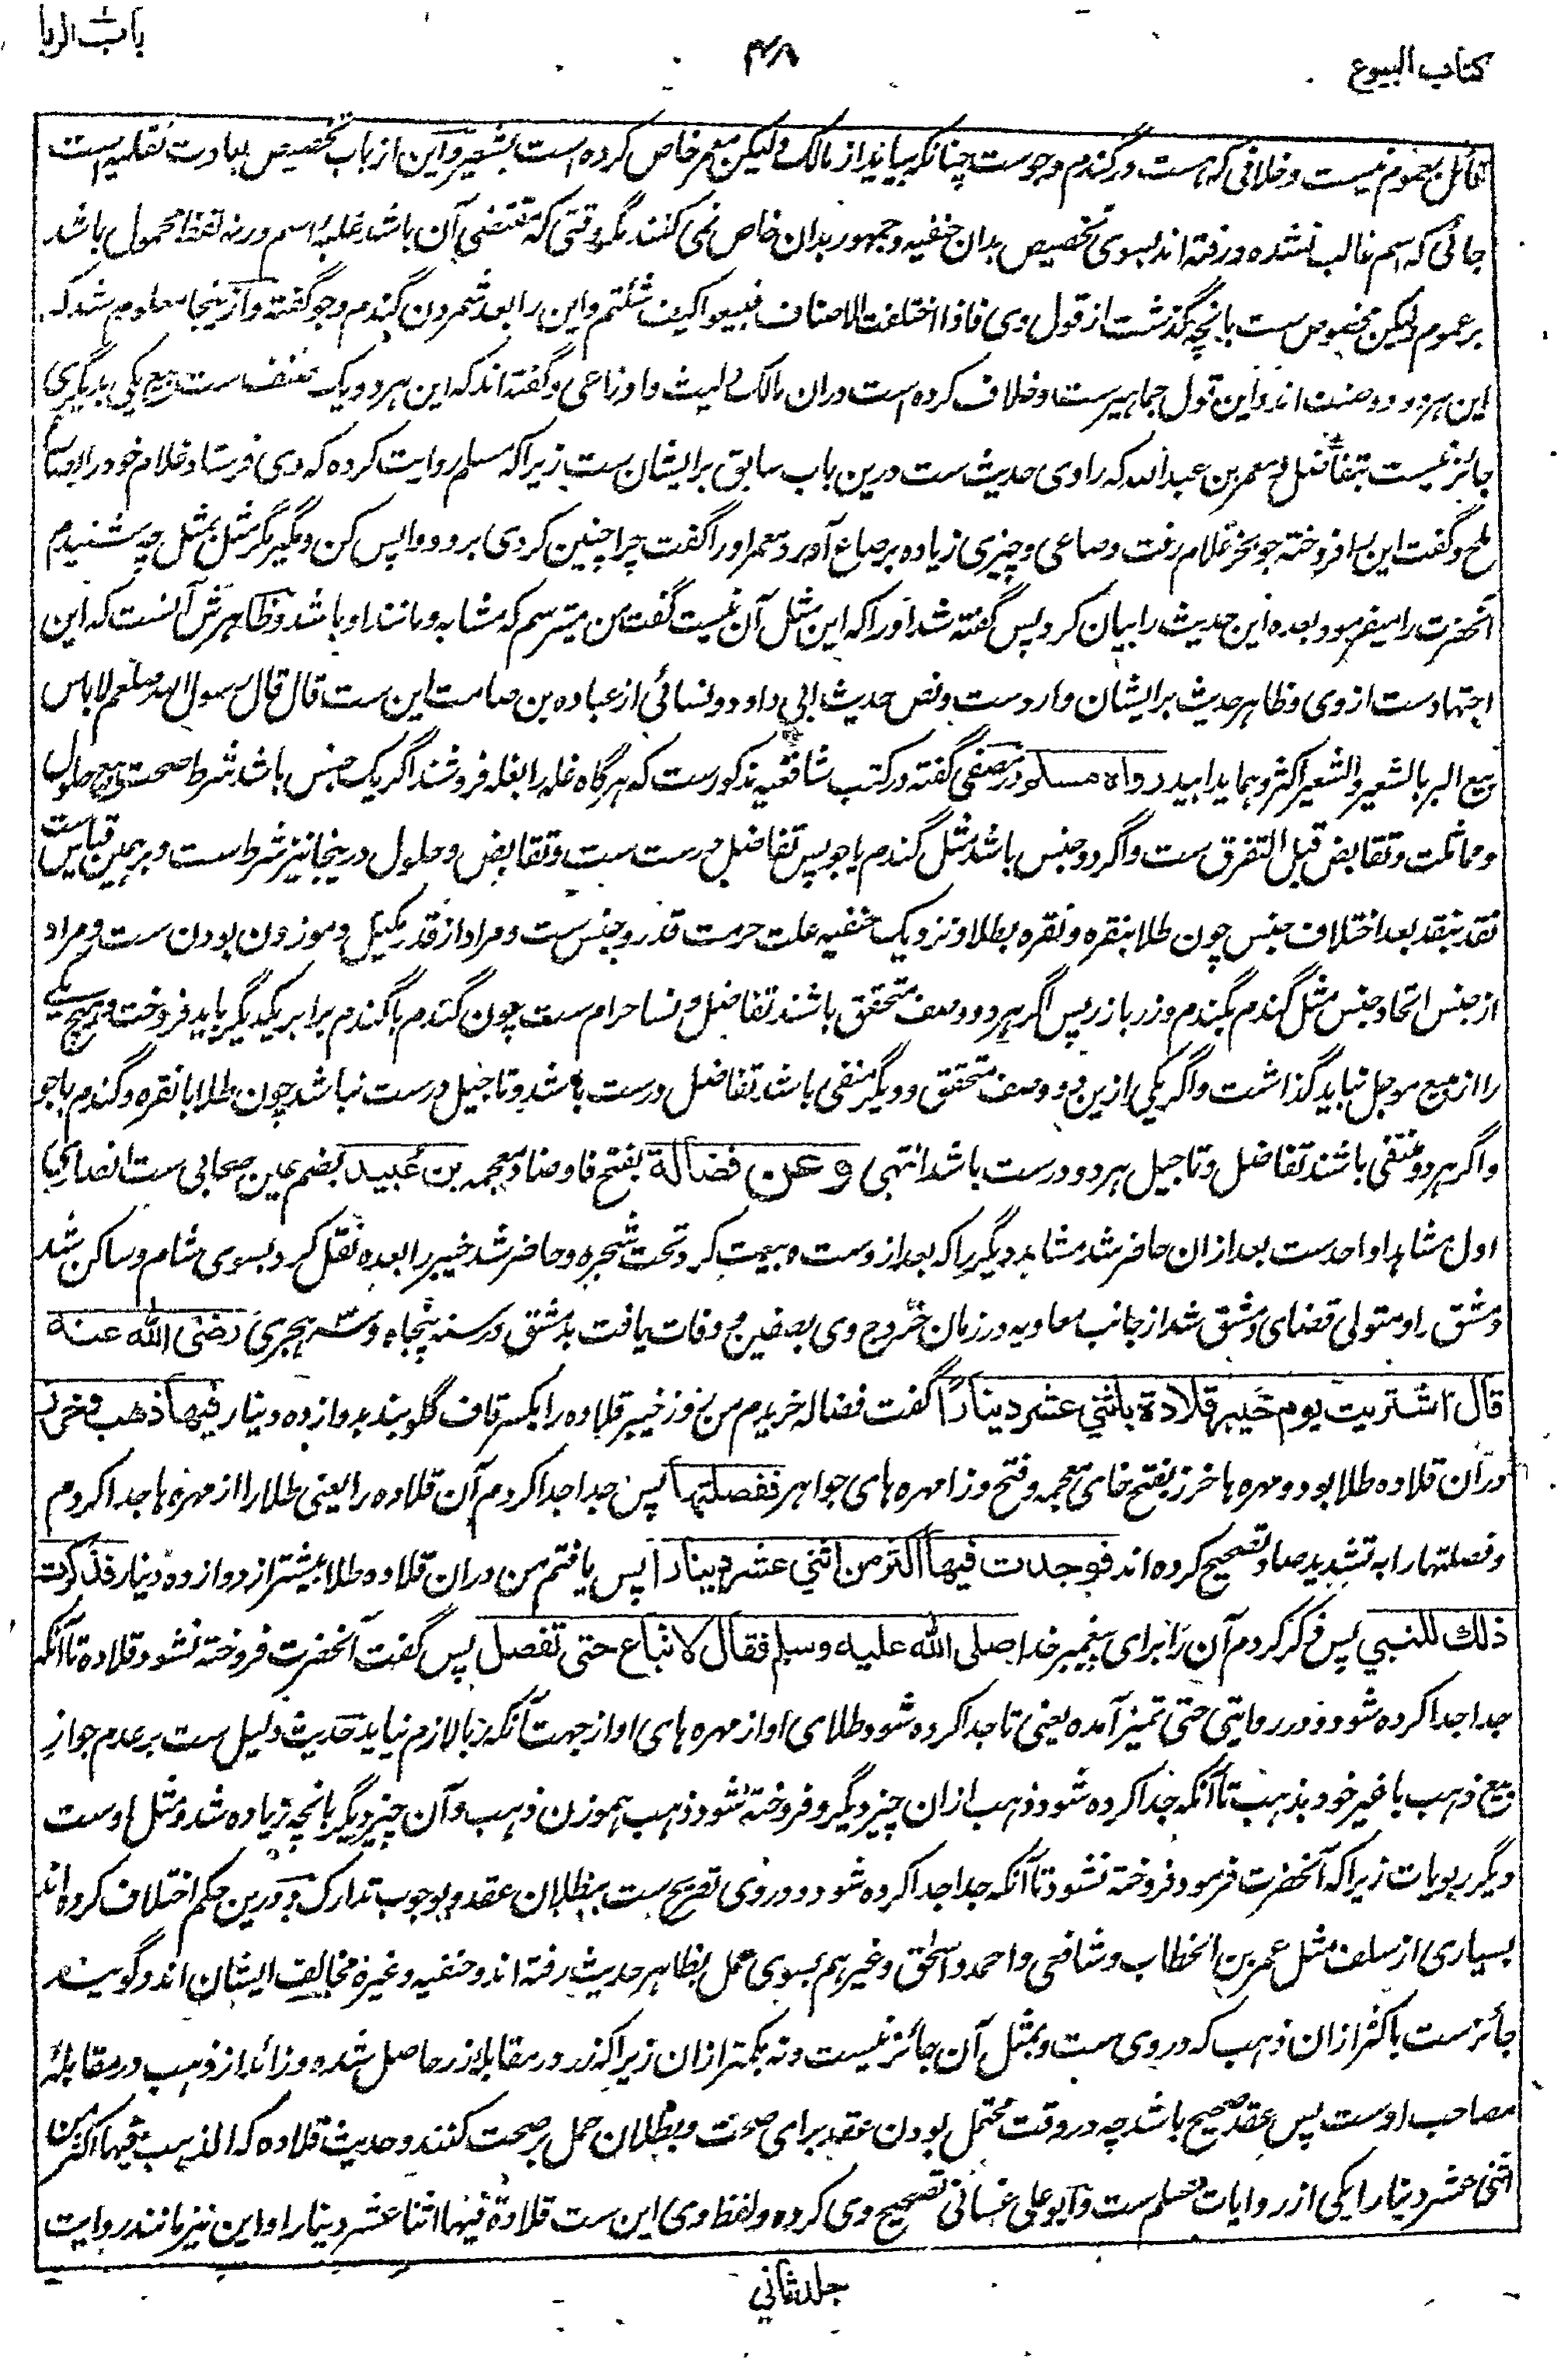 باب الربا
۴۸
کتاب البیوع
قائل بعموم نیست و خلافی که هست در گندم و جوست چنانکه بیاید از مالک و لیکن معمر خاص کرده است بشعیر و این از باب تخصیص بعادت نقلیه است
جائی که اسم غالب نشده و رفته اند بسوی تخصیص بدان حنفیه و جمهور بدان خاص نمی کنند مگر وقتی که مقتضی آن باشد غلبه اسم ورنه لفظ محمول باشد
بر عموم ولیکن مخصوص ست بانچه گذشت از قول وی فاذا اختلفت الاصناف فبیعوا کیف شئتم و این را بعد شمردن گندم و جو گفته و ازینجا معلوم شد که
این هر دو دو صنف اند و این قول جماهیرست و خلاف کرده است دران مالک و لیث و اوزاعی و گفته اند که این هر دو یک صنف ست و بیع یکی بدیگری
جائز نیست بتفاضل و معمر بن عبدالله که راوی حدیث ست درین باب سابق بر ایشان ست زیرا که مسلم روایت کرده که وی فرستاد غلام خود را بصاع
قمح و گفت این را فروخته جو بخر غلام رفت و صاعی و چیزی زیاده بر صاع آورد معمر او را گفت چرا چنین کردی برو و واپس کن و مگیر مگر مثل بمثل چه شنیدم
آنحضرت را میفرمود و بعده این حدیث را بیان کرد پس گفته شد او را که این مثل آن نیست گفت من میترسم که مشابه و مانند او باشد و ظاهرش آنست که این
اجتهادست از وی و ظاهر حدیث بر ایشان واردست و نص حدیث ابی داود و نسائی از عباده بن صامت این ست قال قال رسول الله صلعم لا باس
ببیع البر بالشعیر و الشعیر اکثر و هما یدا بید رواه مسلم در مصفی گفته در کتب شافعیه مذکورست که هرگاه غله را بغله فروشند اگر یک جنس باشد شرط صحت بیع حلول
و مماثلت و تقابض قبل التفرق ست و اگر دو جنس باشد مثل گندم با جو پس تفاضل درست ست و تقابض و حلول درینجا نیز شرط ست و بر همین قیاس ست
نقد بنقد بعد اختلاف جنس چون طلا بنقره و نقره بطلا و نزدیک حنفیه علت حرمت قدر و جنس ست و مراد از قدر مکیل و موزون بودن ست و مراد
از جنس اتحاد جنس مثل گندم بگندم و زر بازر پس اگر هر دو وصف متحقق باشند تفاضل و نسا حرام ست چون گندم با گندم برابر یکدیگر باید فروخت و هیچ یکے
را از بیع موجل نباید گذاشت و اگر یکی ازین دو وصف متحقق و دیگر منفی باشد تفاضل درست باشد و تاجیل درست نباشد چون طلا با نقره و گندم با جو
و اگر هر دو منتفی باشند تفاضل و تاجیل هر دو درست باشد انتهی وعن فضالة بفتح فا و ضاد معجمه بن عُبید بضم عین صحابی ست انصاری
اول مشاهد او احدست بعد ازان حاضر شد مشاهد دیگر را که بعد ازوست و بیعت کرد تحت شجره و حاضر شد خیبر را بعده نقل کرد بسوی شام و ساکن شد
دمشق را و متولی قضای دمشق شد از جانب معاویه در زمان خروج وی بصفین و وفات یافت بدمشق در سنه پنجاه و سه هجری رضی الله عنه
قال اشتریت یوم خیبر قلادة باثنی عشر دینارًا گفت فضاله خریدم من روز خیبر قلاده را بکسر قاف گلوبند بدوازده دینار فیها ذهب وخرز
دران قلاده طلا بود و مهره ها خرز بفتح خای معجمه و فتح و زا مهره های جواهر ففصلتها پس جدا جدا کردم آن قلاده را یعنی طلا را از مهره ها جدا کردم
و فصلتها را به تشدید صاد تصحیح کرده اند فوجدت فیها اکثر من اثنی عشر دینارا پس یافتم من دران قلاده طلا بیشتر از دوازده دینار فذکرت
ذلك للنبی پس ذکر کردم آن را برای پیغمبر خدا صلی الله علیه وسلم فقال لا تباع حتی تفصل پس گفت آنحضرت فروخته نشود قلاده تا آنکه
جدا جدا کرده شود و در روایتی حتی تمیز آمده یعنی تا جدا کرده شود طلای او از مهره های او از جهت آنکه ربا لازم نیاید حدیث دلیل ست بر عدم جواز
بیع ذهب با غیر خود بذهب تا آنکه جدا کرده شود ذهب ازان چیز دیگر و فروخته شود ذهب هموزن ذهب و آن چیز دیگر بانچه زیاده شد و مثل اوست
دیگر ربویات زیرا که آنحضرت فرمود فروخته نشود تا آنکه جدا جدا کرده شود و در وی تصریح ست ببطلان عقد و بوجوب تدارک و درین حکم اختلاف کرده اند
بسیاری از سلف مثل عمر بن الخطاب و شافعی و احمد و اسحٰق و غیرهم بسوی عمل بظاهر حدیث رفته اند و حنفیه و غیره مخالف ایشان اند و گویند
جائزست باکثر ازان ذهب که در وی ست و بمثل آن جائز نیست و نه بکمتر ازان زیرا که زر در مقابله زر حاصل شده و زائد از ذهب در مقابله
مصاحب اوست پس عقد صحیح باشد چه در وقت محتمل بودن عقد برای صحت و بطلان حمل بر صحت کنند و حدیث قلاده که الذهب فیها اکثر من
اثنی عشر دینارا یکی از روایات مسلم ست و ابو علی غسانی تصحیح وی کرده و لفظ وی این ست قلادة فیها اثنا عشر دینارا و این نیز مانند روایت
جلد ثانی